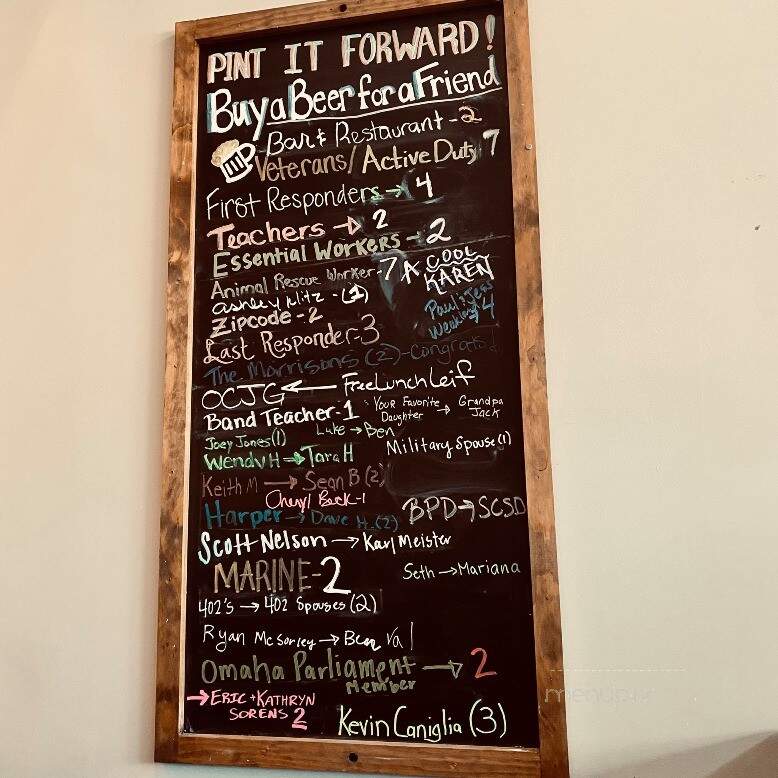 PINT IT FORWARD!
Buy a Beer for a Friend
Bar & Restaurant - 2
Veterans/Active Duty 7
First Responders → 4
Teachers → 2
Essential Workers - 2
Animal Rescue Worker - 7
A COOL KAREN
Ashley Witz - (1)
Zipcode - 2
Paul & Jess
→ 4
Last Responder - 3
The Morrisons (2) - Congrats!
OCJG ← Free Lunch Leif
Band Teacher - 1
Your Favorite Daughter → Grandpa Jack
Joey Jones (1)
Luke → Ben
Military Spouse (1)
Wendy H → Tara H
Keith M → Sean B (2)
Cheryl Beck - 1
Harper → Dave H. (2)
BPD → SCSD
Scott Nelson → Karl Meister
MARINE - 2
Seth → Mariana
402's → 402 Spouses (2)
Ryan McSorley →
Omaha Parliament Member → 2
→ ERIC + KATHRYN
SORENS 2
Kevin Caniglia (3)
menupix